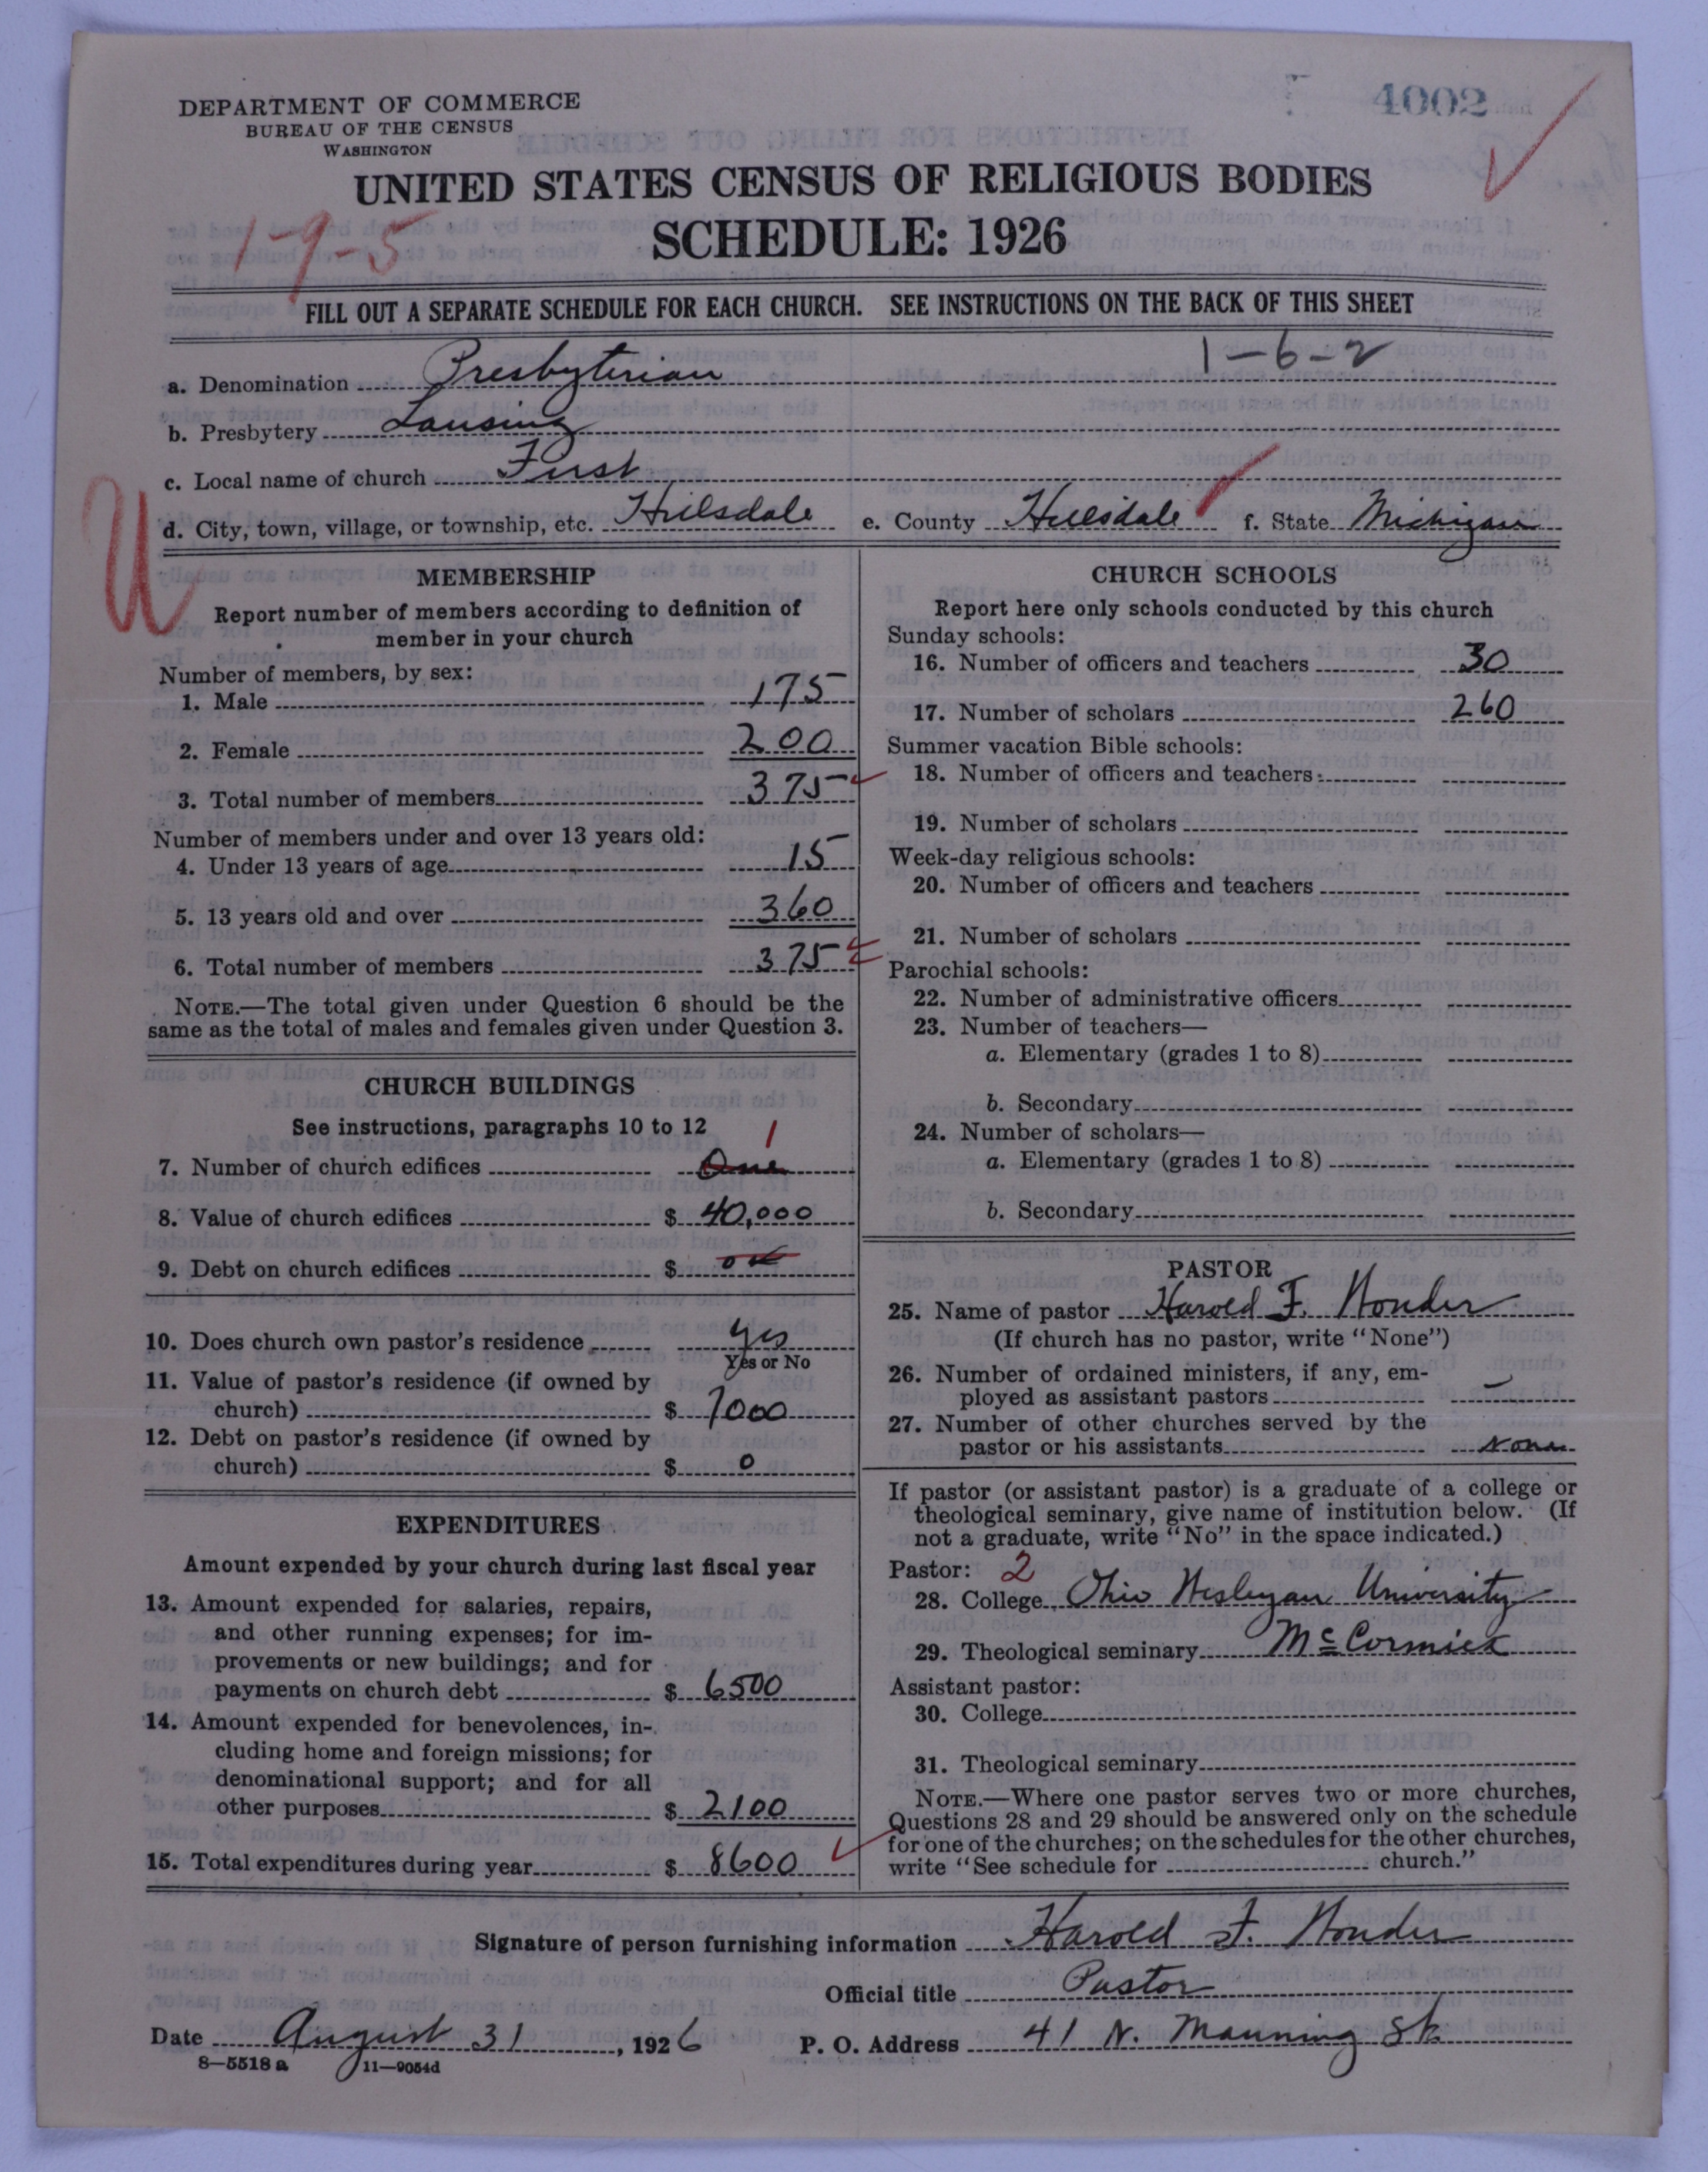 4002
DEPARTMENT OF COMMERCE
BUREAU OF THE CENSUS
WASHINGTON
UNITED STATES CENSUS OF RELIGIOUS BODIES
1-9-5
SCHEDULE: 1926
FILL OUT A SEPARATE SCHEDULE FOR EACH CHURCH. SEE INSTRUCTIONS ON THE BACK OF THIS SHEET
1-6-2
a. Denomination Presbyterian
b. Presbytery Lansing
c. Local name of church First
U
d. City, town, village, or township, etc. Hillsdale e. County Hillsdale f. State Michigan
MEMBERSHIP
Report number of members according to definition of
member in your church
Number of members, by sex:
1. Male 175
2. Female 200
3. Total number of members 375
Number of members under and over 13 years old:
4. Under 13 years of age 15
5. 13 years old and over 360
6. Total number of members 375
NOTE.—The total given under Question 6 should be the
same as the total of males and females given under Question 3.
CHURCH BUILDINGS
See instructions, paragraphs 10 to 12
1
7. Number of church edifices One
8. Value of church edifices $ 40,000
9. Debt on church edifices $
10. Does church own pastor's residence yes
Yes or No
11. Value of pastor's residence (if owned by
church) $ 7000
12. Debt on pastor's residence (if owned by
church) $ 0
EXPENDITURES
Amount expended by your church during last fiscal year
13. Amount expended for salaries, repairs,
and other running expenses; for im-
provements or new buildings; and for
payments on church debt $ 6500
14. Amount expended for benevolences, in-
cluding home and foreign missions; for
denominational support; and for all
other purposes $ 2100
15. Total expenditures during year $ 8600
CHURCH SCHOOLS
Report here only schools conducted by this church
Sunday schools:
16. Number of officers and teachers 30
17. Number of scholars 260
Summer vacation Bible schools:
18. Number of officers and teachers
19. Number of scholars
Week-day religious schools:
20. Number of officers and teachers
21. Number of scholars
Parochial schools:
22. Number of administrative officers
23. Number of teachers—
a. Elementary (grades 1 to 8)
b. Secondary
24. Number of scholars—
a. Elementary (grades 1 to 8)
b. Secondary
PASTOR
25. Name of pastor Harold F.
(If church has no pastor, write "None")
26. Number of ordained ministers, if any, em-
ployed as assistant pastors —
27. Number of other churches served by the
pastor or his assistants None
If pastor (or assistant pastor) is a graduate of a college or
theological seminary, give name of institution below. (If
not a graduate, write "No" in the space indicated.)
Pastor: 2
28. College Ohio Wesleyan University
29. Theological seminary McCormick
Assistant pastor:
30. College
31. Theological seminary
NOTE.—Where one pastor serves two or more churches,
Questions 28 and 29 should be answered only on the schedule
for one of the churches; on the schedules for the other churches,
write "See schedule for church."
Signature of person furnishing information Harold F.
Official title Pastor
Date August 31, 1926 P. O. Address 41 N. Manning St.
8—5518 a 11—9054d